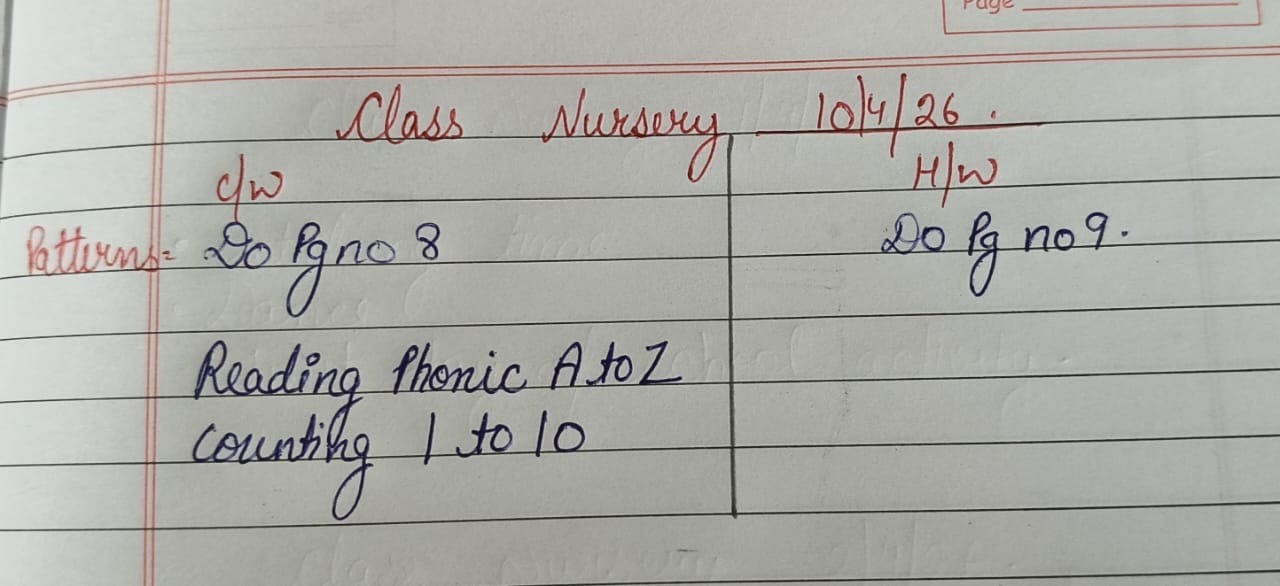 Page
Class Nursery 10/4/26.
C/W H/W
Patterns= Do Pg no 8 Do Pg no 9.
Reading Phonic A to Z
Counting 1 to 10